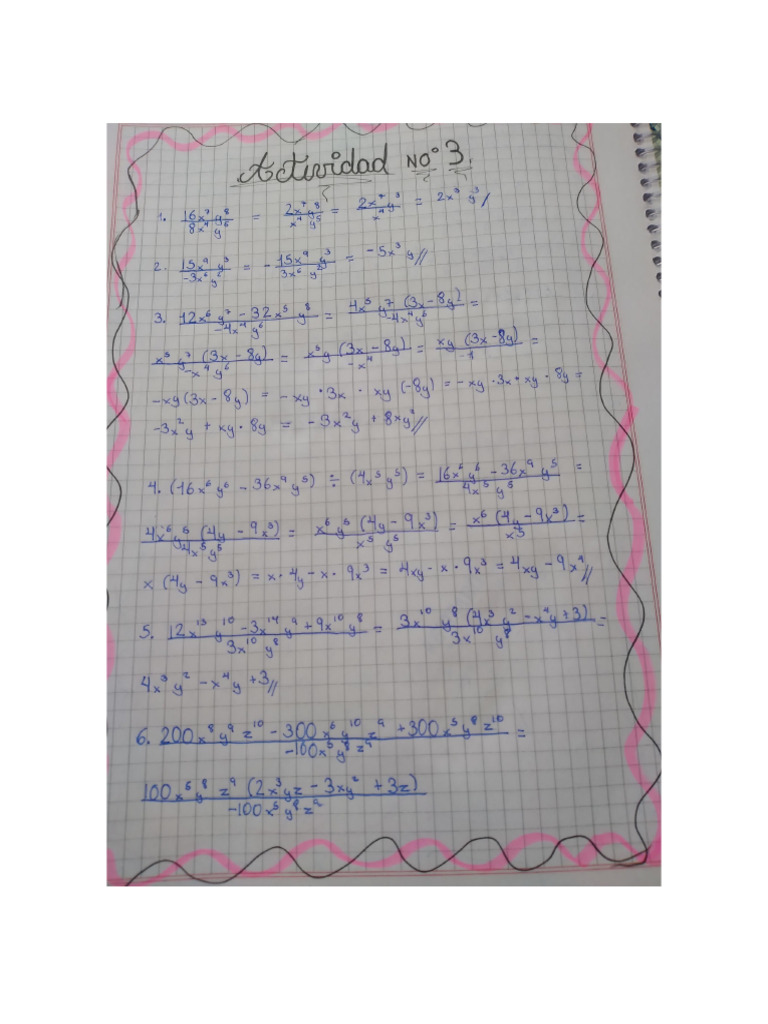 Actividad NO° 3.
1. 16x⁷y⁸/8x⁴y⁶ = 2x⁷y⁸/x⁴y⁵ = 2x⁷y³/x⁴ = 2x³y³/
2. 15x⁹y³/-3x⁶y² = -15x⁹y³/3x⁶y² = -5x³y//
3. 12x⁶y⁷ - 32x⁵y⁸/-4x⁴y⁶ = 4x⁵y⁷(3x - 8y)/-4x⁴y⁶ =
x⁵y⁷(3x - 8y)/-x⁴y⁶ = x⁵y(3x - 8y)/-x⁴ = xy(3x - 8y)/-1 =
-xy(3x - 8y) = -xy · 3x · xy(-8y) = -xy · 3x · xy · 8y =
-3x²y + xy · 8y = -3x²y + 8xy²//
4. (16x⁶y⁶ - 36x⁹y⁵) ÷ (4x⁵y⁵) = 16x⁶y⁶ - 36x⁹y⁵/4x⁵y⁵ =
4x⁶y⁵(4y - 9x³)/4x⁵y⁵ = x⁶y⁵(4y - 9x³)/x⁵y⁵ = x⁶(4y - 9x³)/x⁵ =
x(4y - 9x³) = x · 4y - x · 9x³ = 4xy - x · 9x³ = 4xy - 9x⁴//
5. 12x¹³y¹⁰ - 3x¹⁴y⁹ + 9x¹⁰y⁸/3x¹⁰y⁸ = 3x¹⁰y⁸(4x³y² - x⁴y + 3)/3x¹⁰y⁸ =
4x³y² - x⁴y + 3//
6. 200x⁸y⁹z¹⁰ - 300x⁶y¹⁰z⁹ + 300x⁵y⁸z¹⁰/-100x⁵y⁸z⁹ =
100x⁵y⁸z⁹(2x³yz - 3xy² + 3z)/-100x⁵y⁸z⁹